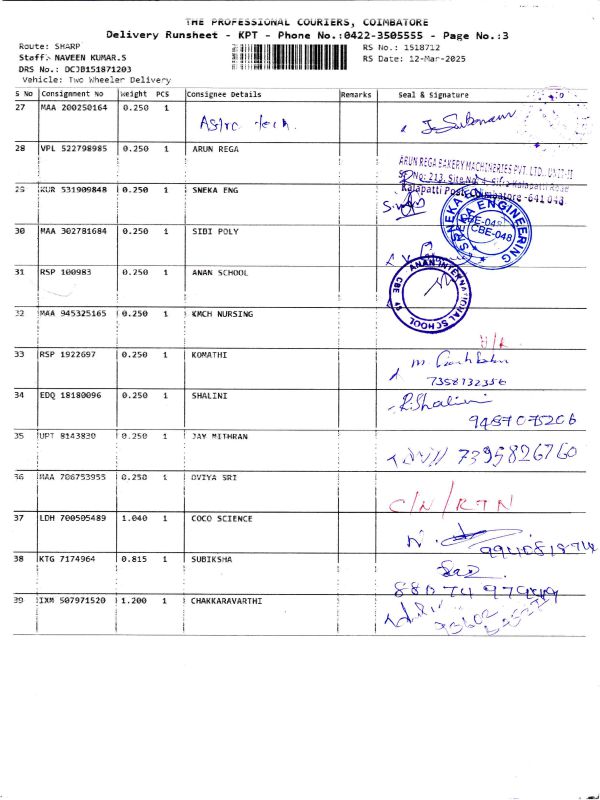 THE PROFESSIONAL COURIERS, COIMBATORE
Delivery Runsheet - KPT - Phone No.:0422-3505555 - Page No.:3
Route: SHARP RS No.: 1518712
Staff:- NAVEEN KUMAR.S RS Date: 12-Mar-2025
DRS No.: DCJB151871203
Vehicle: Two Wheeler Delivery
S No Consignment No Weight PCS Consignee Details Remarks Seal & Signature
27 MAA 200250164 0.250 1 Astro tech.
28 VPL 522798985 0.250 1 ARUN REGA
ARUN REGA BAKERY MACHINERIES PVT. LTD., UNIT-II
Kalapatti Post, Coimbatore - 641 048
29 KUR 531909848 0.250 1 SNEKA ENG
SNEKA ENGINEERING CBE-048
30 MAA 302781684 0.250 1 SIBI POLY
31 RSP 100983 0.250 1 ANAN SCHOOL
ANAN INTERNATIONAL SCHOOL CBE
32 MAA 945325165 0.250 1 KMCH NURSING
33 RSP 1922697 0.250 1 KOMATHI
7358132356
34 EDQ 18180096 0.250 1 SHALINI R.Shalini
9487075206
35 UPT 8143830 0.250 1 JAY MITHRAN 7395826760
36 MAA 706753955 0.250 1 OVIYA SRI C/N/RTN
37 LDH 700505489 1.040 1 COCO SCIENCE
38 KTG 7174964 0.815 1 SUBIKSHA
39 IXM 507971520 1.200 1 CHAKKARAVARTHI